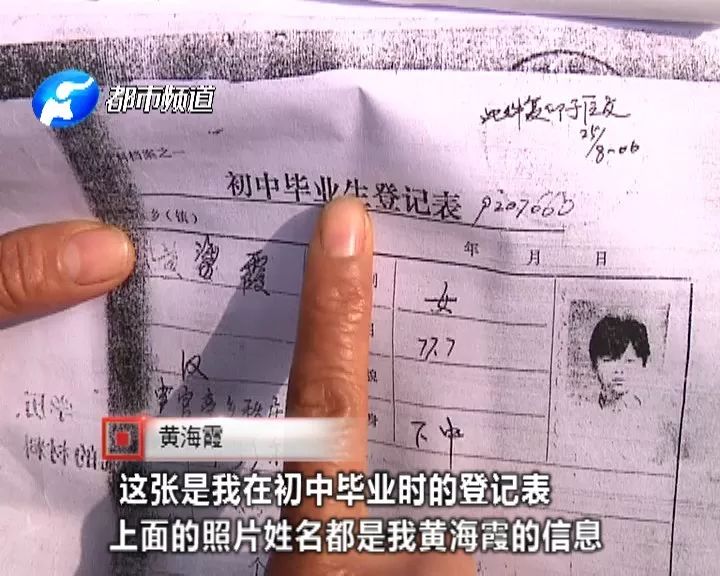 都市频道
此件复印于
25/8-06
档案之一
初中毕业生登记表
9207060
乡(镇)
年 月 日
黄海霞
女
77.7
汉
下中
黄海霞
这张是我在初中毕业时的登记表
上面的照片姓名都是我黄海霞的信息